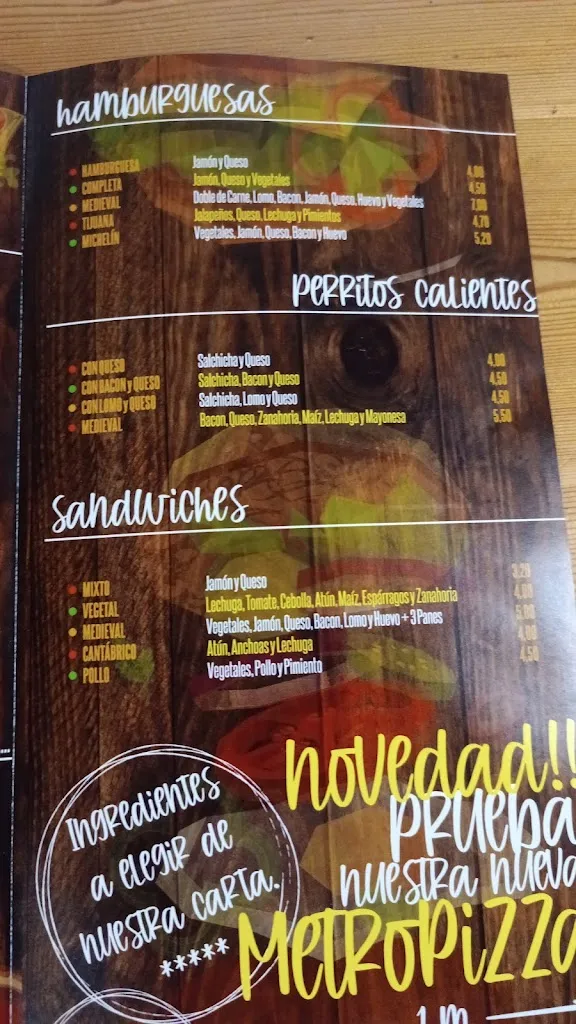 hamburguesas
HAMBURGUESA Jamón y Queso 4,00
COMPLETA Jamón, Queso y Vegetales 4,50
MEDIEVAL Doble de Carne, Lomo, Bacon, Jamón, Queso, Huevo y Vegetales 7,00
TIJUANA Jalapeños, Queso, Lechuga y Pimientos 4,70
MICHELÍN Vegetales, Jamón, Queso, Bacon y Huevo 5,20
perritos calientes
CON QUESO Salchicha y Queso 4,00
CON BACON y QUESO Salchicha, Bacon y Queso 4,50
CON LOMO y QUESO Salchicha, Lomo y Queso 4,50
MEDIEVAL Bacon, Queso, Zanahoria, Maíz, Lechuga y Mayonesa 5,50
sandwiches
MIXTO Jamón y Queso 3,20
VEGETAL Lechuga, Tomate, Cebolla, Atún, Maíz, Espárragos y Zanahoria 4,00
MEDIEVAL Vegetales, Jamón, Queso, Bacon, Lomo y Huevo + 3 Panes 5,00
CANTÁBRICO Atún, Anchoas y Lechuga 4,00
POLLO Vegetales, Pollo y Pimiento 4,50
Ingredientes
a elegir de
nuestra carta.
*****
novedad!!
prueba
nuestra nueva
Metropizza
1 m